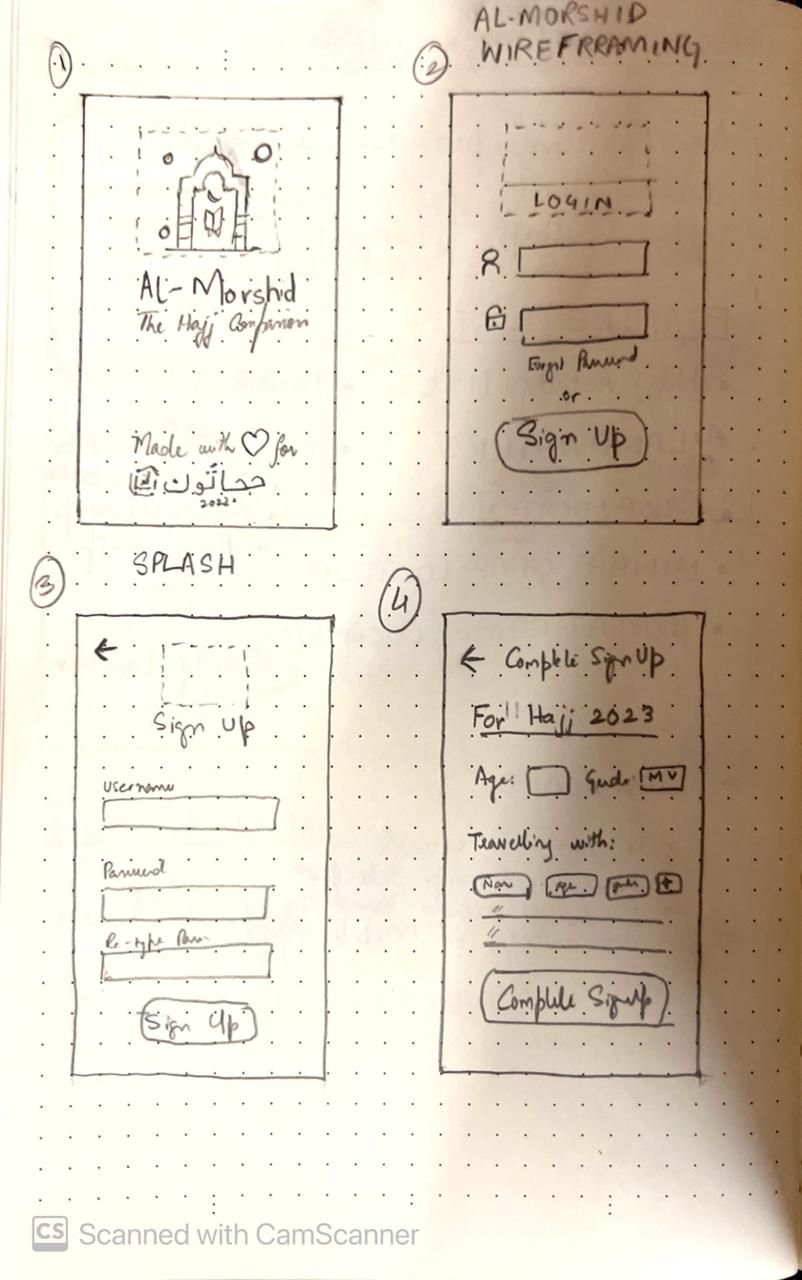 AL-MORSHID
WIREFRRAMING
1
AL-Morshid
The Hajj Companion
Made with ♡ for
حجاثون
2022.
SPLASH
2
LOGIN
Forgot Password
or
Sign Up
3
←
Sign Up
Username
Password
Re-type Pass
Sign Up
4
← Complete Sign Up
For Hajj 2023
Age: Gende M V
Travelling with:
Name Age gender +
"
"
Complete SignUp
CS Scanned with CamScanner